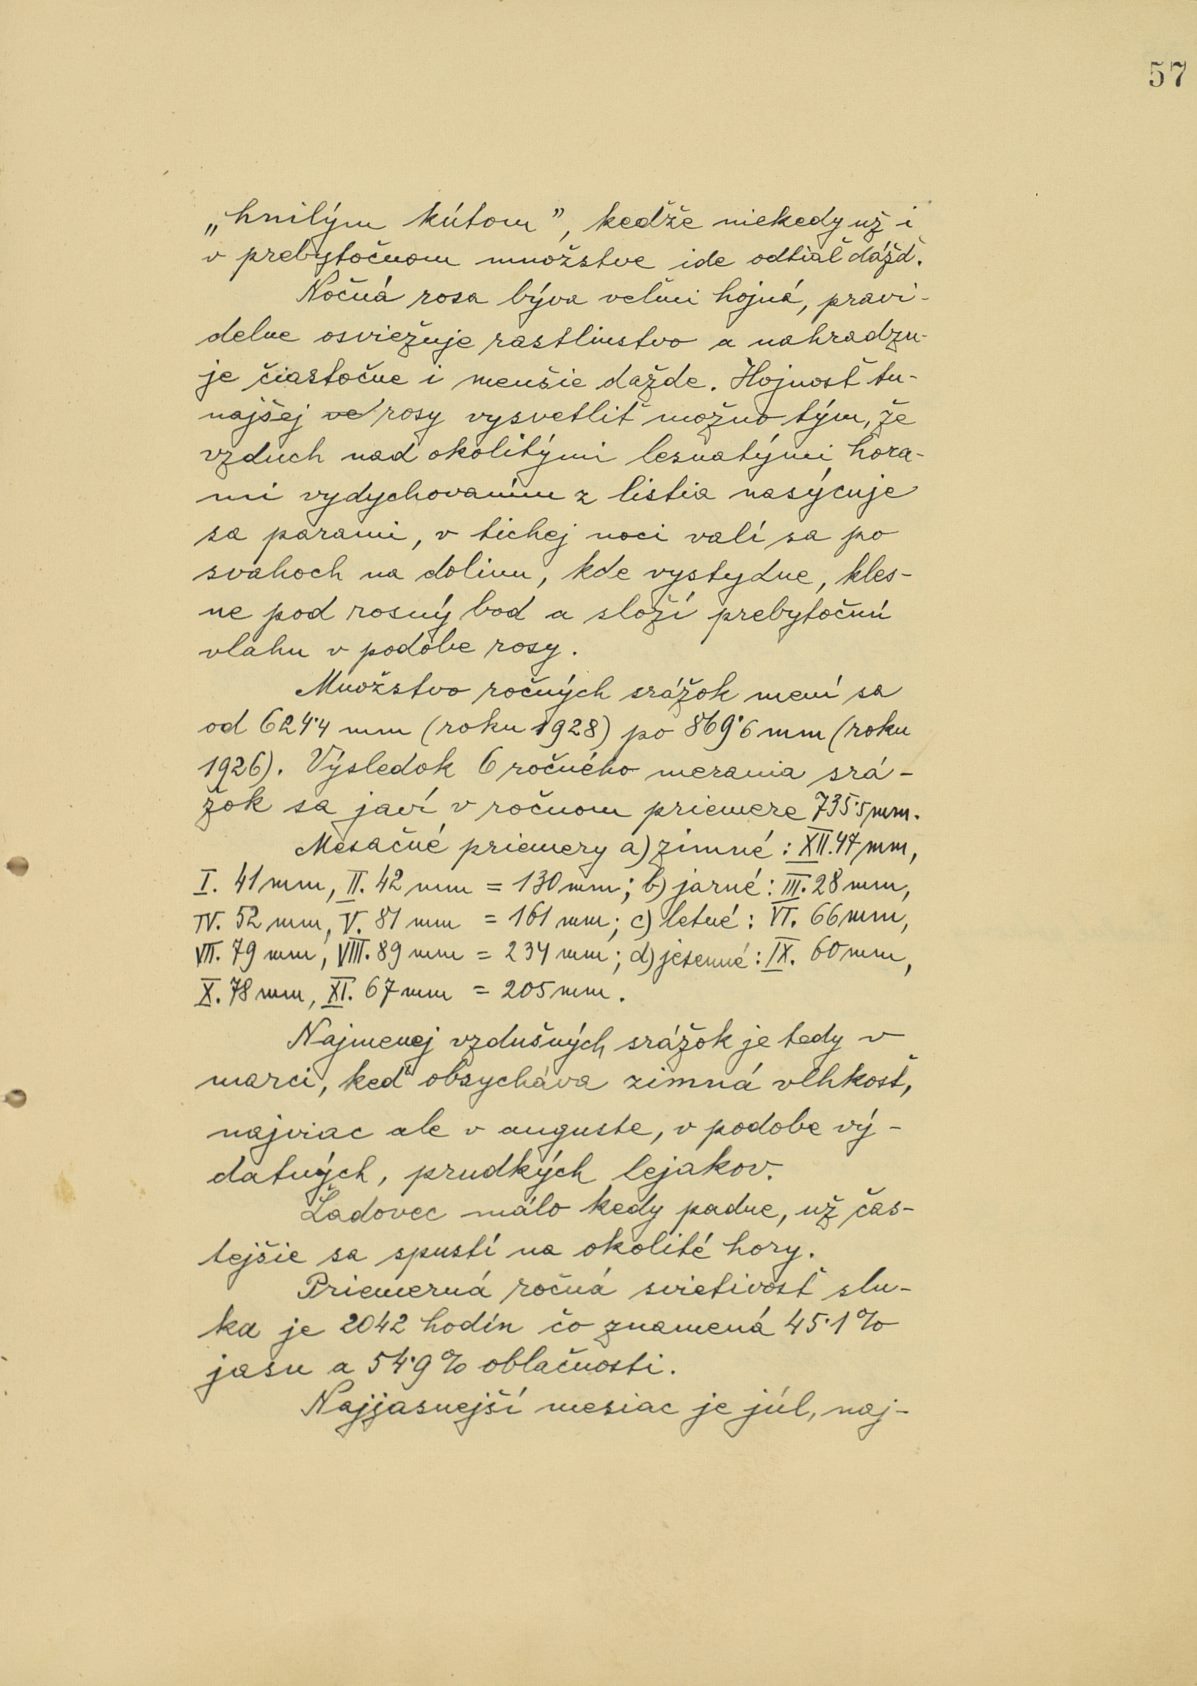 57
„hnilým kútom”, kedže niekedy už i
v prebytočnom množstve ide odtiaľ dážď.
Nočná rosa býva veľmi hojná, pravi-
delne osviežuje rastlinstvo a nahradzu-
je čiastočne i menšie dažde. Hojnosť tu-
najšej ve rosy vysvetliť možno tým, že
vzduch nad okolitými lesnatými hora-
mi vydychovaním z listia nasýcuje
sa parami, v tichej noci valí sa po
svahoch na dolinu, kde vystydne, kles-
ne pod rosný bod a složí prebytočnú
vlahu v podobe rosy.
Množstvo ročných srážok mení sa
od 624·4 mm (roku 1928) po 869·6 mm (roku
1926). Výsledok 6 ročného merania srá-
žok sa javí v ročnom priemere 735·5 mm.
Mesačné priemery a) zimné: XII. 47 mm,
I. 41 mm, II. 42 mm = 130 mm; b) jarné: III. 28 mm,
IV. 52 mm, V. 81 mm = 161 mm; c) letné: VI. 66 mm,
VII. 79 mm, VIII. 89 mm = 234 mm; d) jesenné: IX. 60 mm,
X. 78 mm, XI. 67 mm = 205 mm.
Najmenej vzdušných srážok je tedy v
marci, keď obsycháva zimná vlhkosť,
najviac ale v auguste, v podobe vý-
datných, prudkých lejakov.
Ľadovec málo kedy padne, už čas-
tejšie sa spustí na okolité hory.
Priemerná ročná svietivosť sln-
ka je 2042 hodín čo znamená 45·1%
jasu a 54·9% oblačnosti.
Najjasnejší mesiac je júl, naj-